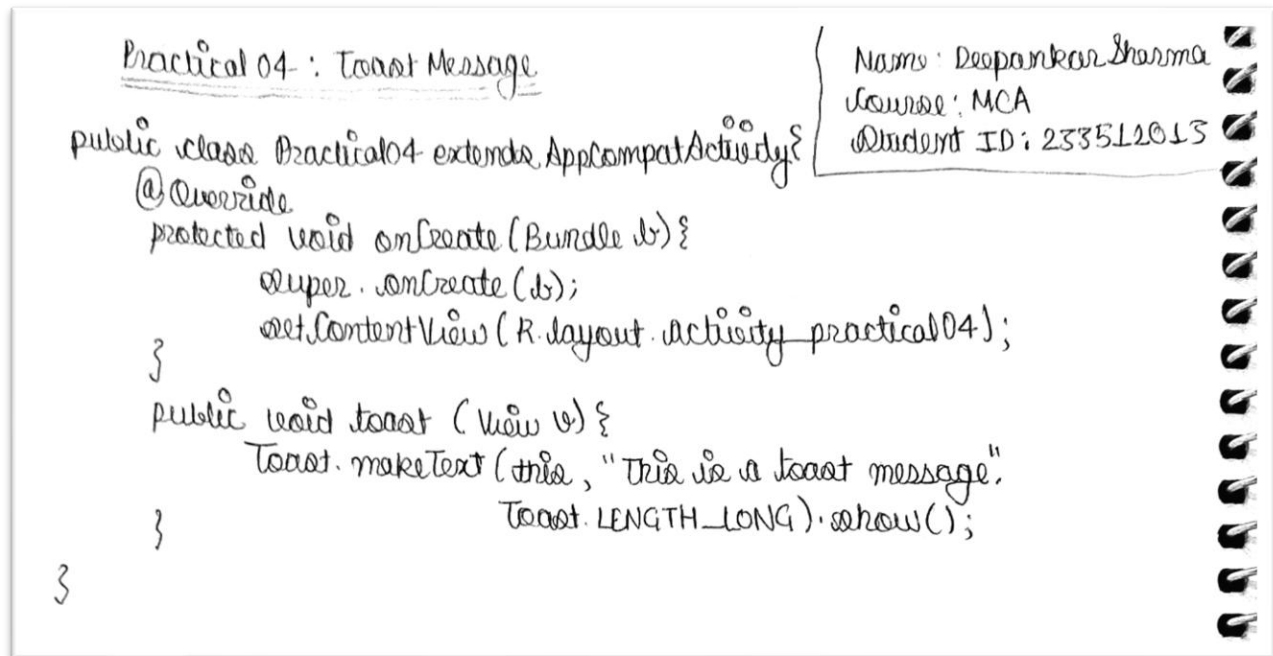 Practical 04 : Toast Message
Name: Deepankar Sharma
Course: MCA
Student ID: 233512013
public class Practical04 extends AppCompatActivity{
@Override
protected void onCreate (Bundle b) {
super.onCreate (b);
set.ContentView (R.layout.activity_practical04);
}
public void toast (View v) {
Toast.makeText (this, "This is a toast message".
Toast.LENGTH_LONG).show();
}
}